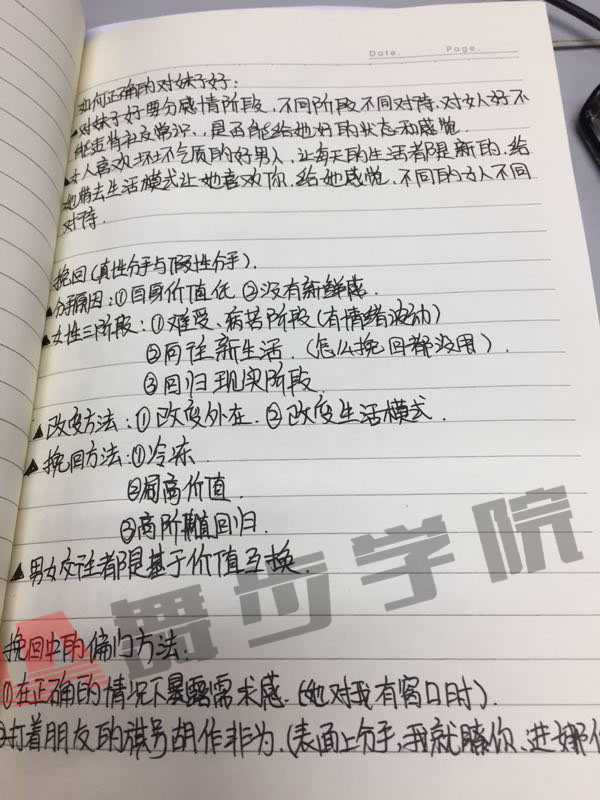 Date.  Page.
如何正确的对妹子好:
▲对妹子好要分感情阶段,不同阶段不同对待.对女人好不
能违背社交常识,是否能给她好的状态和感觉.
▲女人喜欢坏坏气质的好男人,让每天的生活都是新的.给
她带去生活模式让她喜欢你.给她感觉.不同的女人不同
对待.
挽回(真性分手与假性分手).
▲分手原因:①自身价值低 ②没有新鲜感.
▲女性三阶段:①难受、痛苦阶段(有情绪波动)
②向往新生活.(怎么挽回都没用).
③回归现实阶段.
▲改变方法:①改变外在.②改变生活模式.
▲挽回方法:①冷冻
②提高价值.
③高价值回归.
▲男女交往都是基于价值互换.
舞步学院
挽回中的偏门方法.
①在正确的情况下暴露需求感.(她对我有窗口时).
②打着朋友的旗号胡作非为.(表面上分手,我就睡你、进